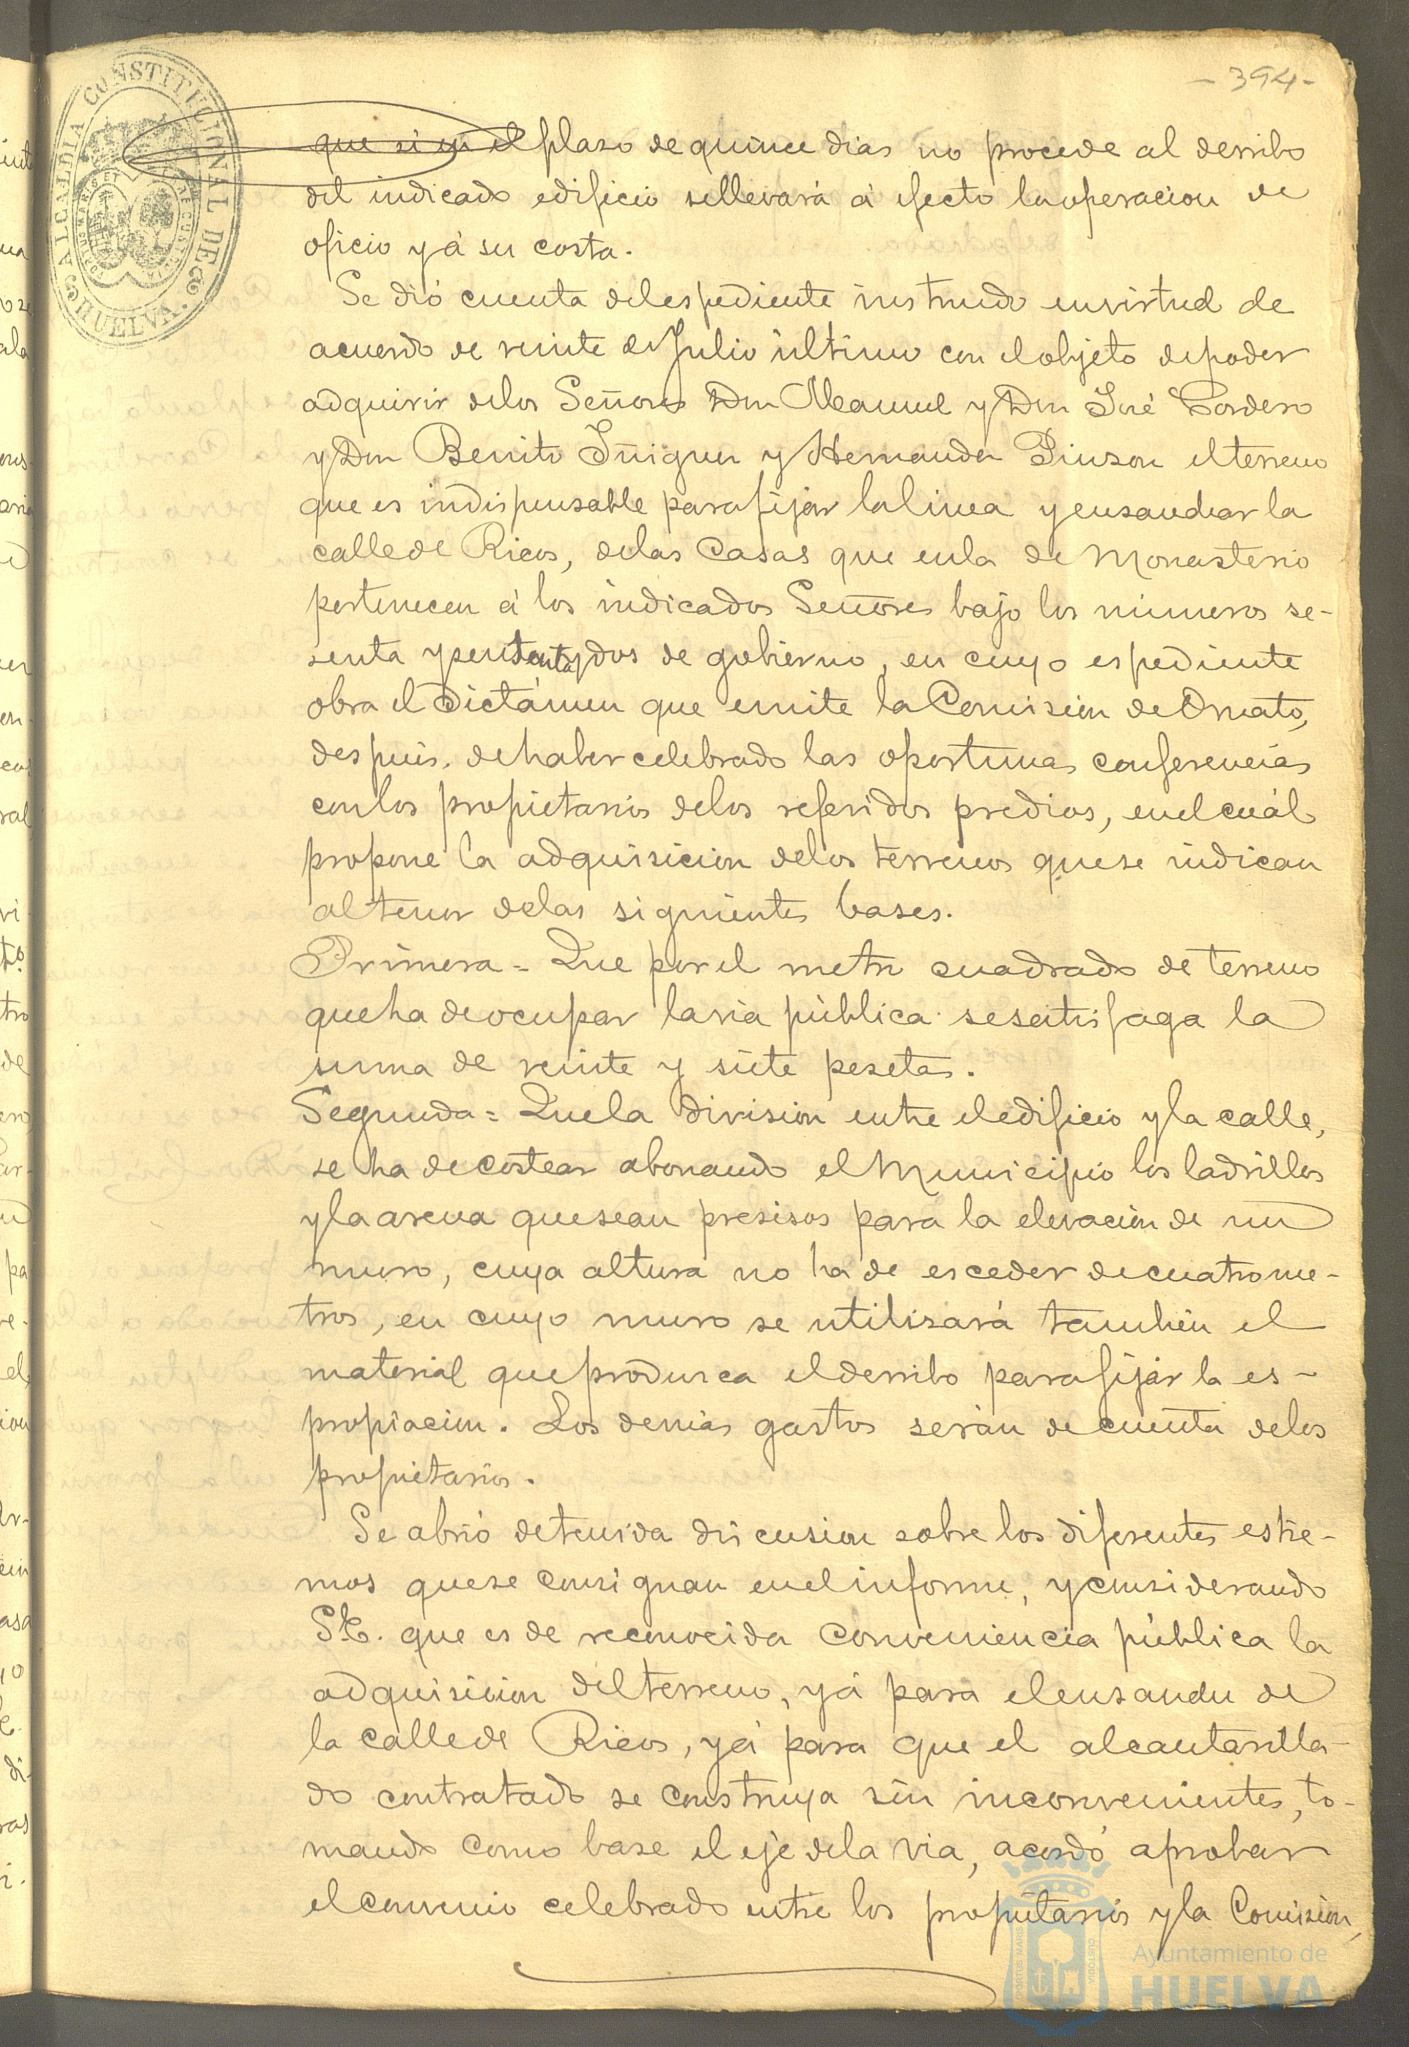 - 394 -
ALCALDIA CONSTITUCIONAL DE HUELVA.
que si en el plaso de quince dias no procede al derribo
del indicado edificio se llevará á efecto la operacion de
oficio y á su costa.
Se dió cuenta del espediente instruido en virtud de
acuerdo de veinte de Julio último con el objeto de poder
adquirir de los Señores Don Manuel y Don José Cordero
y Don Benito Iñiguez y Hernandez Pinzon el terreno
que es indispensable para fijar la linea y ensanchar la
calle de Ricos, de las Casas que en la de Monasterio
pertenecen á los indicados Señores bajo los números se-
senta y sesenta y dos de gobierno, en cuyo espediente
obra el Dictámen que emite la Comision de Ornato,
despues de haber celebrado las oportunas conferencias
con los propietarios de los referidos predios, en el cuál
propone la adquisicion de los terrenos que se indican
al tenor de las siguientes bases.
Primera = Que por el metro cuadrado de terreno
que ha de ocupar la via pública se satisfaga la
suma de veinte y siete pesetas.
Segunda = Que la division entre el edificio y la calle,
se ha de costear abonando el Municipio los ladrillos
y la arena que sean presisos para la elevación de un
muro, cuya altura no ha de esceder de cuatro me-
tros, en cuyo muro se utilisará tambien el
material que produzca el derribo para fijar la es-
propiacion. Los demás gastos serán de cuenta de los
propietarios.
Se abrió detenida discusion sobre los diferentes estre-
mos que se consignan en el informe, y considerando
S.E. que es de reconocida conveniencia pública la
adquisicion del terreno, yá para el ensanche de
la calle de Ricos, yá para que el alcantarilla-
do contratado se construya sin inconvenientes, to-
mando como base el eje de la via, acordó aprobar
el convenio celebrado entre los propietarios y la Comision,
Ayuntamiento de
HUELVA